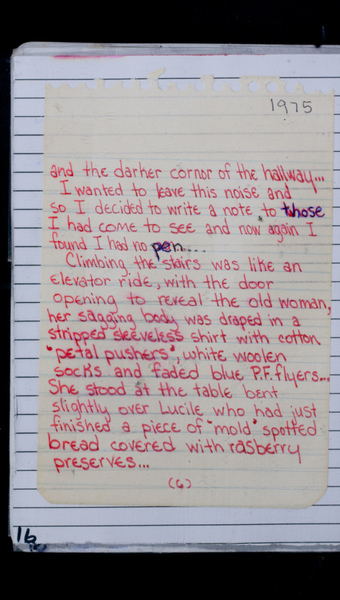 1975
and the darker cornor of the hallway...
I wanted to leave this noise and
so I decided to write a note to whose
I had come to see and now again I
found I had no pen....
Climbing the stairs was like an
elevator ride, with the door
opening to reveal the old woman,
her sagging body was draped in a
stripped sleeveless shirt with cotton
"petal pushers", white woolen
socks and faded blue P.F. flyers...
She stood at the table bent
slightly over Lucile who had just
finished a piece of "mold" spotted
bread covered with rasberry
preserves...
(6)
16